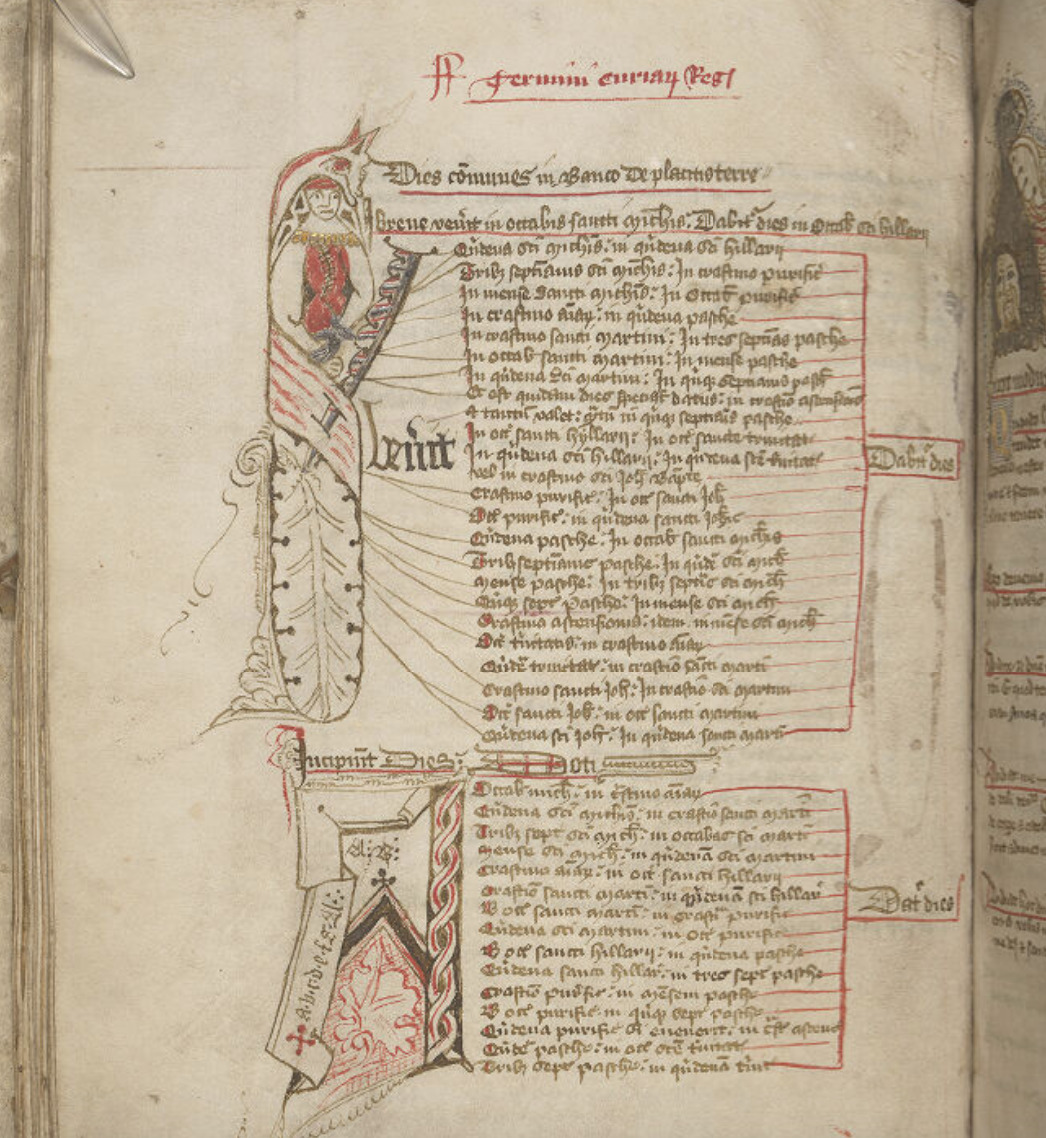 Termini curiarum Reg
Dies cōmunes in Banco De placitis terre
breve veniat in octabis sancti Michis. Dabitr dies in Octab sci hillarii
Quidena sci Michis: in quidena sci hillarii
Tribz septianis sci Michis: In crastino purific
In mense sancti Michis: In Octab purific
In crastino aiar: in quidena pasche
In crastino sancti Martini: In tres septias pasche
In octab sancti Martini: In mense pasche
In quidena sci Martini: In quiqz septianis pasch
Et est quidam dies specialis datus: in crastino ascensionis
tantum valet: in quiqz septianis pasche
In oct sancti hyllarii: In oct sancte trinitat
In quidena sci hillarii: In quidena sce trinitat
vel in crastino sci Joh Bapte
Crastino purific: In oct sancti Joh
Oct purific: in quidena sancti Johis
Quidena pasche: In octab sancti Michis
Tribz septianis pasche: In quide sci Mich
Mense pasche: In tribz septis sci Mich
Quiqz sept Pasche: In mense sci Mich
Crastino ascensionis: idem in mense sci Mich
Oct trinitatis: in crastino aiar
Quide trinitat: in crastino sancti Marti
Crastino sancti Joh: In crastio sci Martini
Oct sancti Joh: in oct sancti Martini
Quidena sci Joh: In quidena sancti Marti
veniit
Dabitr dies
Incipiunt Dies: Doti
Octab mich: in crastino aiar
Quidena sci Michis: in crastio sancti Marti
Tribz sept sci Mich: in octabas sci Marti
Mense sci Mich: in quidena sci Martini
Crastino aiar: in oct sancti hillarii
Crastio sancti Marti: quidena sci hillar
oct sancti Marti: in crasti purific
Quidena sci Martini: in oct purific
oct sancti hillarii: in quidena pasche
Quidena sancti hillar: in tres sept pasche
Crastio purific: in mesem pasche
oct purific: in quiqz sept pasche
Quidena purific si evenerit: in crast ascens
Quide pasche: in oct sce trinitat
Tribz sept pasche: in quidena trinit
Dat dies
A: B: